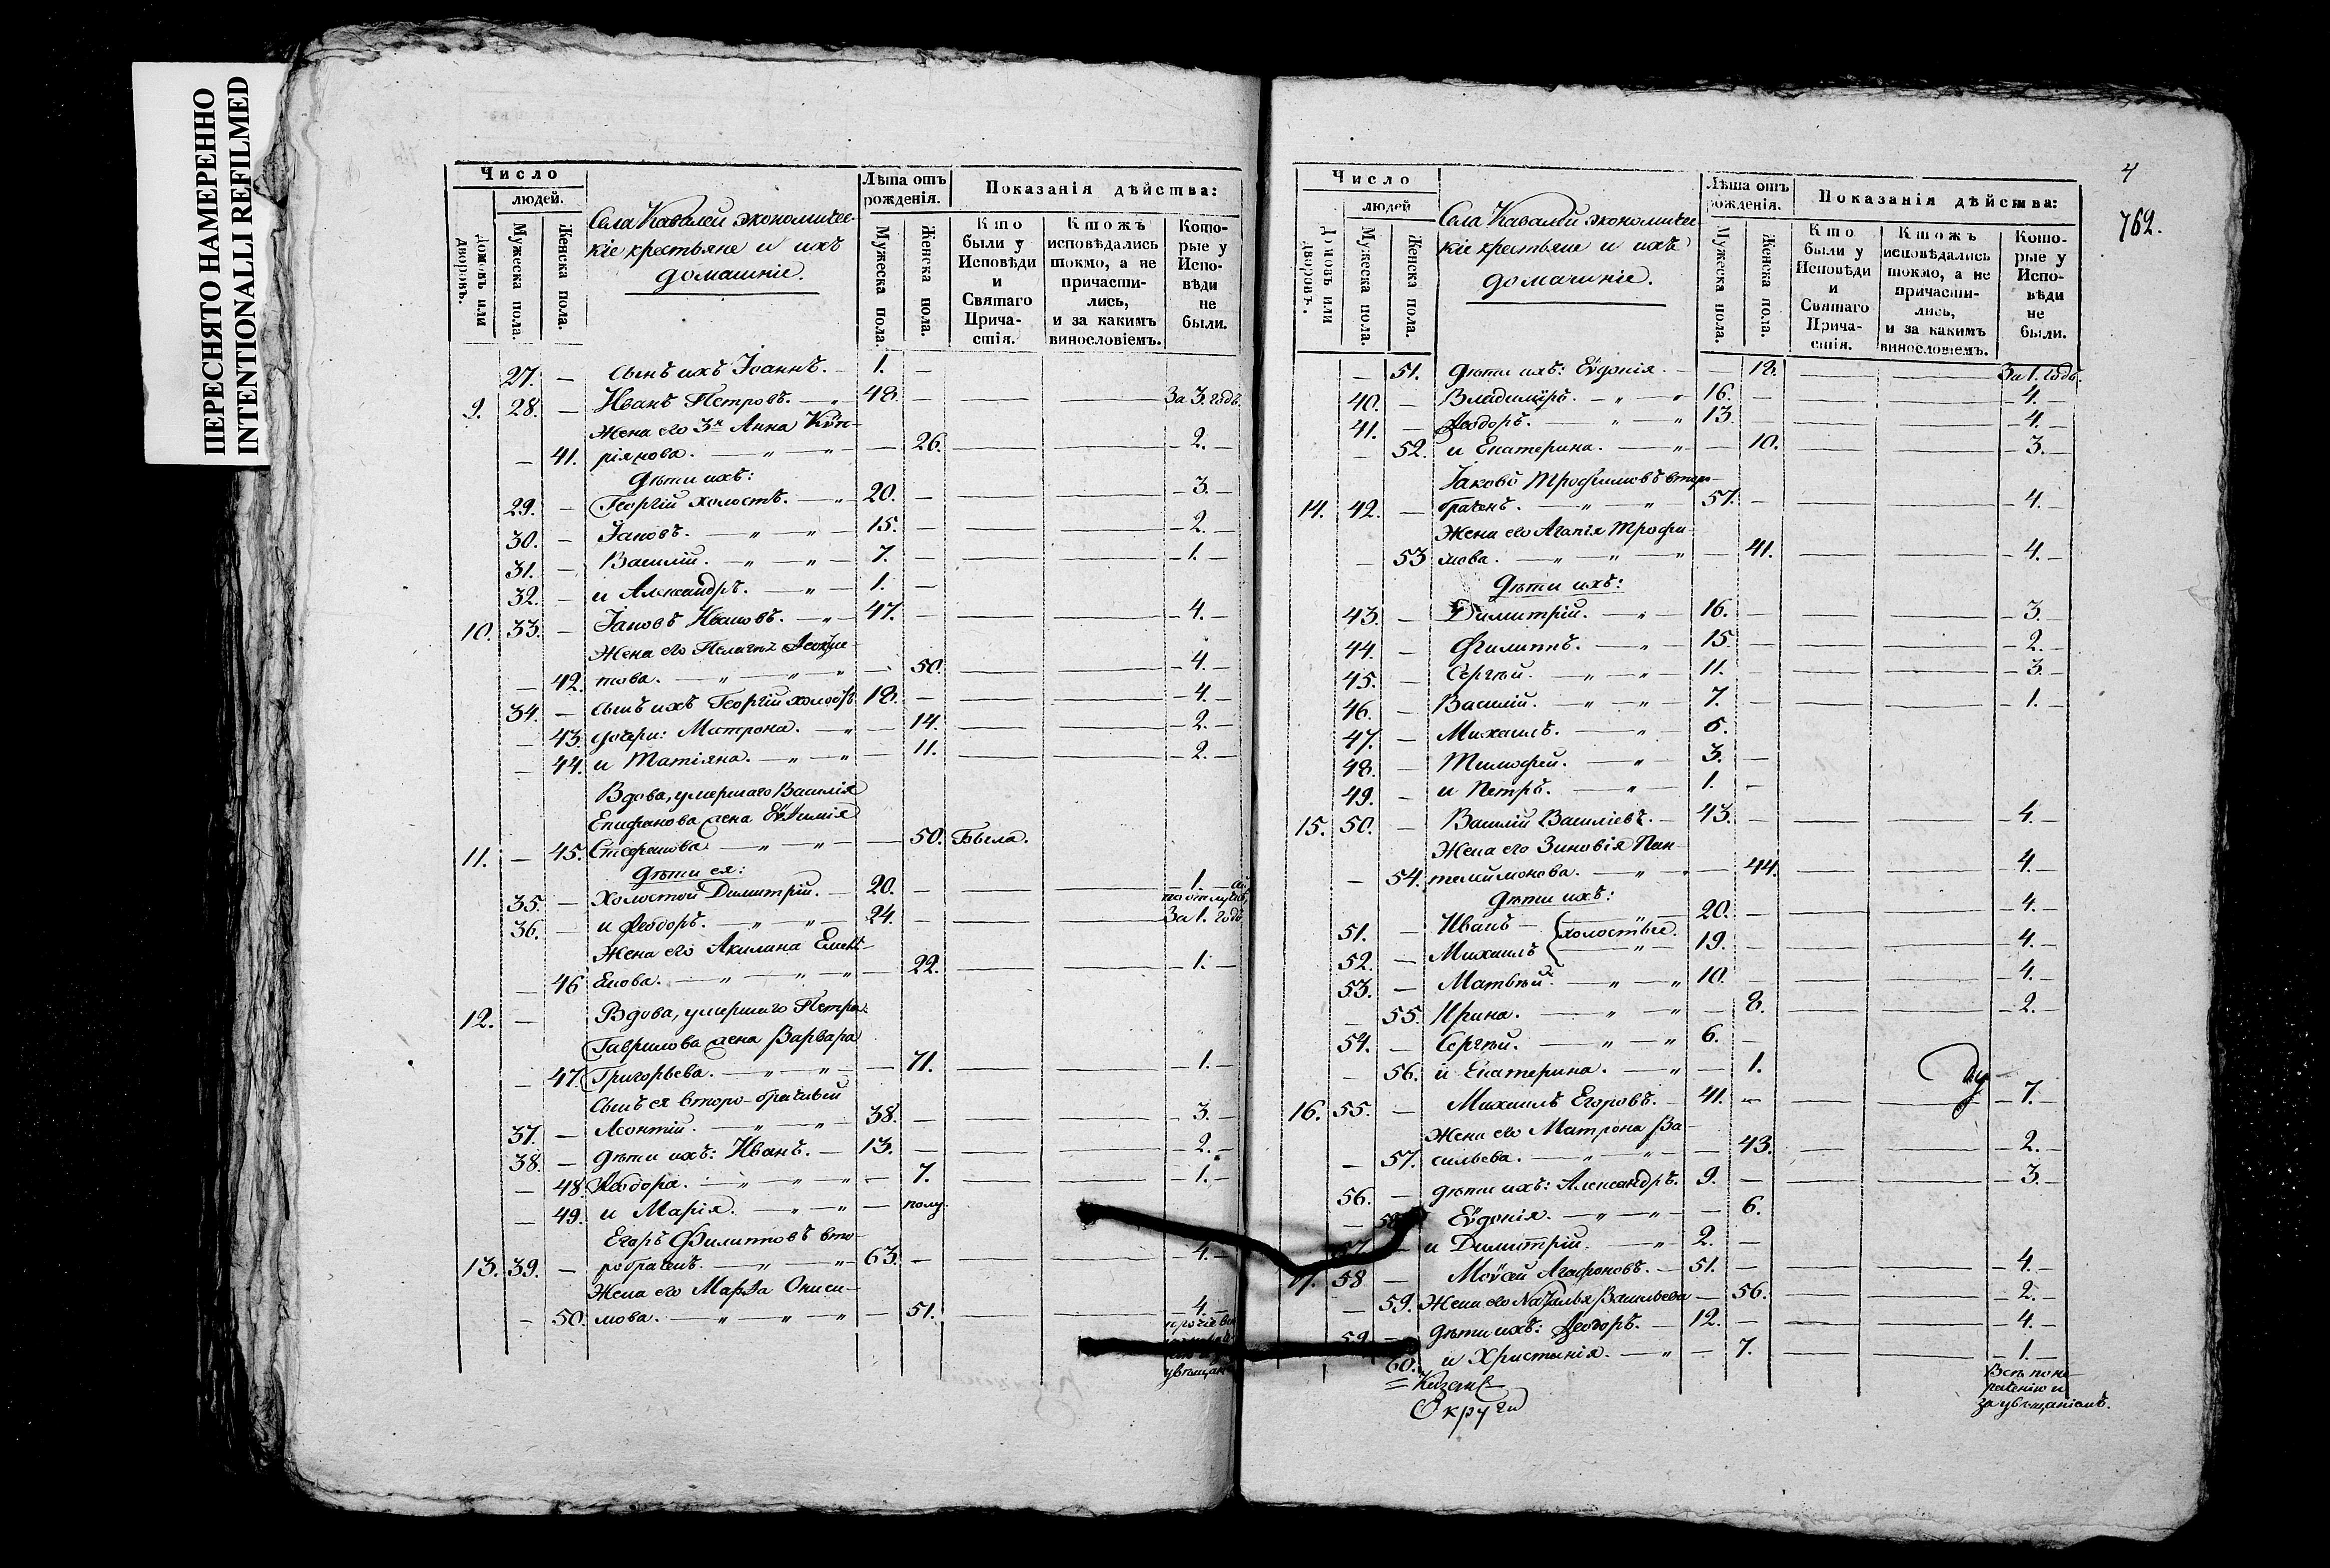 ПЕРЕСНЯТО НАМЕРЕННО
INTENTIONALLI REFILMED
Число
людей.
домовъ или дворовъ.
Мужеска пола.
Женска пола.
Села Кавалей экономичес-
кіе крестьяне и ихъ
домашніе.
Лѣта отъ рожденія.
Мужеска пола.
Женска пола.
Показанія дѣйства:
Кто были у Исповѣди и Святаго Прича-стія.
Ктожъ исповѣдались токмо, а не причасти-лись, и за какимъ винословіемъ.
Кото-рые у Испо-вѣди не были.
27. — сынъ ихъ Іоаннъ. — 1. —
9. 28. — Иванъ Петровъ. — 48. — За 3. годъ.
Жена его 3я Анна Кѵп-
— 41. ріянова. — 26. — 2. —
Дѣти ихъ:
29. — Георгій холостъ. — 20. — 3. —
30. — Іаковъ. — 15. — 2. —
31. — Василій. — 7. — 1. —
32. — и Александръ. — 1. —
10. 33. — Іаковъ Ивановъ. — 47. — 4. —
Жена его
— 42. това. — 50. — 4. —
34. — сынъ ихъ Георгій холостъ 18. — 4. —
— 43. дочери: Матрона. — 14. — 2. —
— 44. и Татіяна. — 11. — 2. —
Вдова, умершаго Василія
Епифанова жена Еѵѳимія
11. — 45. Стефанова — 50. Была.
Дѣти ея:
35. — Холостой Димитрій. — 20. — 1. —
36. — и Ѳеодоръ. — 24. — За 1. годъ
Жена его Акилина Емель-
— 46 — 22. — 1. —
12. — Вдова, умершаго Петра
Гаврилова жена Варвара
— 47. Григорьева. — 71. — 1. —
Сынъ ея второ-брачный
37. — Леонтій. — 38. — 3. —
38. — дѣти ихъ: Иванъ. — 13. — 2. —
— 48. Ѳеодора. — 7. — 1. —
— 49. и Марія. — полу.
Егоръ Филипповъ вто-
13. 39. — робрачнъ. — 63. — 4. —
Жена его Марѳа Ониси-
— 50. мова. — 51. — 4. —
прочіе
увѣщан
4
762.
Число
людей
Домовъ или дворовъ.
Мужеска пола.
Женска пола.
Села Кавалей экономичес-
кіе крестьяне и ихъ
домашніе.
Лѣта отъ рожденія.
Мужеска пола.
Женска пола.
Показанія дѣйства:
Кто были у Исповѣди и Святаго Прича-стія.
Ктожъ исповѣдались токмо, а не причасти-лись, и за какимъ винословіемъ.
Кото-рые у Испо-вѣди не были.
— 51. дѣти ихъ: Еѵдокія — 18. — За 1. годъ.
40. — Владимиръ. — 16. — 4. —
41. — Ѳеодоръ. — 13. — 4. —
— 52. и Екатерина. — 10. — 3. —
Іаковъ Трофимовъ второ-
14. 42. — браченъ. — 57. — 4. —
Жена его Агапія Трофи-
— 53 мова. — 41. — 4. —
Дѣти ихъ:
43. — Димитрій. — 16. — 3. —
44. — Филиппъ. — 15. — 2. —
45. — Сергѣй. — 11. — 3. —
46. — Василій. — 7. — 1. —
47. — Михаилъ. — 5.
48. — Тимофей. — 3. —
49. — и Петръ. — 1. —
15. 50. — Василій Василіевъ. — 43. — 4. —
Жена его Зиновія Пан-
— 54. телиимонова. — 44. — 4. —
Дѣти ихъ:
51. — Иванъ — холостые. 20. — 4. —
52. — Михаилъ 19. — 4. —
53. — Матвѣй. — 10. — 4. —
— 55. Ирина. — 8. — 2. —
54. — Сергѣй. — 6. —
— 56. и Екатерина. — 1.
16. 55. — Михаилъ Егоровъ. — 41. — 7. —
Жена его Матрона Ва-
— 57. сильева. — 43. — 2. —
56. — дѣти ихъ: Александръ. 9. — 3. —
— 58 Еѵдокія. — 6.
57. — и Димитрій. — 2. —
17. 58 — Моѵсей Агафоновъ. — 51. — 4. —
— 59. Жена его Наталья Васильева — 56. — 2. —
59 — дѣти ихъ: Ѳеодоръ. — 12. — 4. —
60. и Христинія. — 7. — 1. —
Всѣ по не-
раченію и
за увѣщаніемъ.
Округи